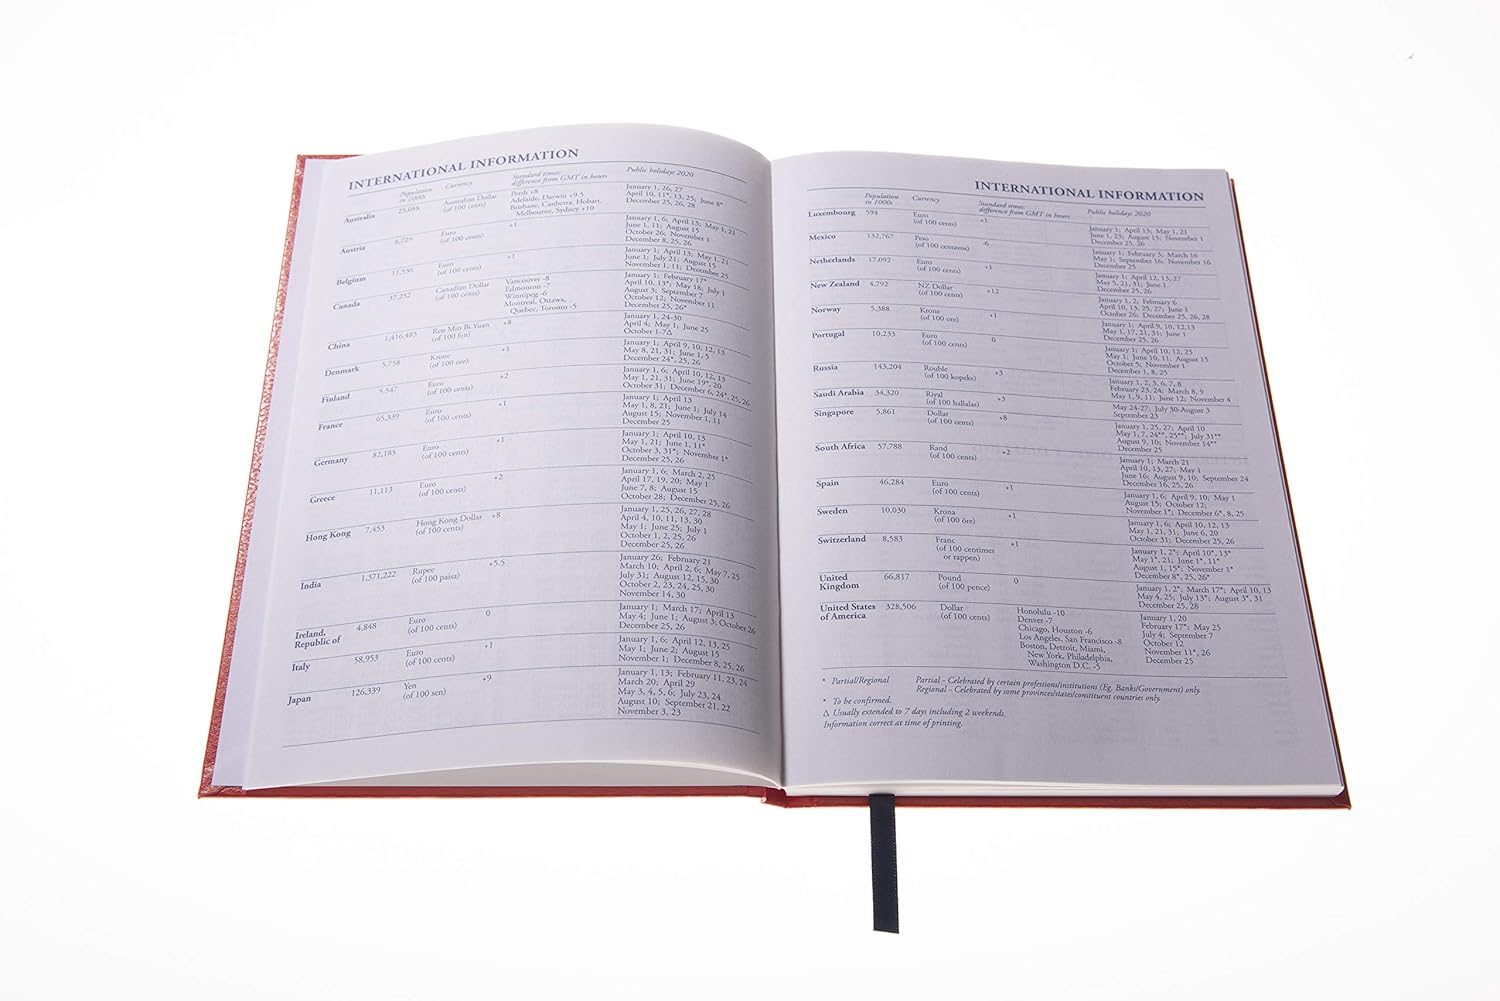 INTERNATIONAL INFORMATION
Population in 1000s Currency Standard times: difference from GMT in hours Public holidays 2020
Australia 25,088 Australian Dollar (of 100 cents) Perth +8
Adelaide, Darwin +9.5
Brisbane, Canberra, Hobart,
Melbourne, Sydney +10
January 1, 26, 27
April 10, 11*, 13, 25; June 8*
December 25, 26, 28
Austria 8,729 Euro (of 100 cents) +1
January 1, 6; April 13; May 1, 21
June 1, 11; August 15
October 26; November 1
December 8, 25, 26
Belgium 11,536 Euro (of 100 cents) +1
January 1; April 13; May 1, 21
June 1; July 21; August 15
November 1, 11; December 25
Canada 37,252 Canadian Dollar (of 100 cents) Vancouver -8
Edmonton -7
Winnipeg -6
Montreal, Ottawa,
Quebec, Toronto -5
January 1; February 17*
April 10, 13*; May 18; July 1
August 3; September 7
October 12; November 11
December 25, 26*
China 1,416,485 Ren Min Bi Yuan (of 100 fen) +8
January 1, 24-30
April 4; May 1; June 25
October 1-7Δ
Denmark 5,758 Krone (of 100 ore) +1
January 1; April 9, 10, 12, 13
May 8, 21, 31; June 1, 5
December 24*, 25, 26
Finland 5,547 Euro (of 100 cents) +2
January 1, 6; April 10, 12, 13
May 1, 21, 31; June 19*, 20
October 31; December 6, 24*, 25, 26
France 65,339 Euro (of 100 cents) +1
January 1; April 13
May 1, 8, 21; June 1; July 14
August 15; November 1, 11
December 25
Germany 82,185 Euro (of 100 cents) +1
January 1; April 10, 13
May 1, 21; June 1, 11*
October 3, 31*; November 1*
December 25, 26
Greece 11,113 Euro (of 100 cents) +2
January 1, 6; March 2, 25
April 17, 19, 20; May 1
June 7, 8; August 15
October 28; December 25, 26
Hong Kong 7,453 Hong Kong Dollar (of 100 cents) +8
January 1, 25, 26, 27, 28
April 4, 10, 11, 13, 30
May 1; June 25; July 1
October 1, 2, 25, 26
December 25, 26
India 1,371,222 Rupee (of 100 paisa) +5.5
January 26; February 21
March 10; April 2, 6; May 7, 25
July 31; August 12, 15, 30
October 2, 23, 24, 25, 30
November 14, 30
Ireland, Republic of 4,848 Euro (of 100 cents) 0
January 1; March 17; April 13
May 4; June 1; August 3; October 26
December 25, 26
Italy 58,953 Euro (of 100 cents) +1
January 1, 6; April 12, 13, 25
May 1; June 2; August 15
November 1; December 8, 25, 26
Japan 126,339 Yen (of 100 sen) +9
January 1, 13; February 11, 23, 24
March 20; April 29
May 3, 4, 5, 6; July 23, 24
August 10; September 21, 22
November 3, 23
INTERNATIONAL INFORMATION
Population in 1000s Currency Standard times: difference from GMT in hours Public holidays 2020
Luxembourg 594 Euro (of 100 cents) +1
January 1; April 13; May 1, 21
June 1, 23; August 15; November 1
December 25, 26
Mexico 132,767 Peso (of 100 centavos) -6
January 1; February 3; March 16
May 1; September 16; November 16
December 25
Netherlands 17,092 Euro (of 100 cents) +1
January 1; April 12, 13, 27
May 5, 21, 31; June 1
December 25, 26
New Zealand 4,792 NZ Dollar (of 100 cents) +12
January 1, 2; February 6
April 10, 13, 25, 27; June 1
October 26; December 25, 26, 28
Norway 5,388 Krone (of 100 ore) +1
January 1; April 9, 10, 12,13
May 1, 17, 21, 31; June 1
December 25, 26
Portugal 10,233 Euro (of 100 cents) 0
January 1; April 10, 12, 25
May 1; June 10, 11; August 15
October 5; November 1
December 1, 8, 25
Russia 143,204 Rouble (of 100 kopeks) +3
January 1, 2, 3, 6, 7, 8
February 23, 24; March 8, 9
May 1, 9, 11; June 12; November 4
Saudi Arabia 34,320 Riyal (of 100 hallalas) +3
May 24-27; July 30-August 3
September 23
Singapore 5,861 Dollar (of 100 cents) +8
January 1, 25, 27; April 10
May 1, 7, 24**, 25**; July 31**
August 9, 10; November 14**
December 25
South Africa 57,788 Rand (of 100 cents) +2
January 1; March 21
April 10, 13, 27; May 1
June 16; August 9, 10; September 24
December 16, 25, 26
Spain 46,284 Euro (of 100 cents) +1
January 1, 6; April 9, 10; May 1
August 15; October 12;
November 1*; December 6*, 8, 25
Sweden 10,030 Krona (of 100 öre) +1
January 1, 6; April 10, 12, 13
May 1, 21, 31; June 6, 20
October 31; December 25, 26
Switzerland 8,583 Franc (of 100 centimes or rappen) +1
January 1, 2*; April 10*, 13*
May 1*, 21; June 1*, 11*
August 1, 15*; November 1*
December 8*, 25, 26*
United Kingdom 66,817 Pound (of 100 pence) 0
January 1, 2*; March 17*; April 10, 13
May 4, 25; July 13*; August 3*, 31
December 25, 28
United States of America 328,506 Dollar (of 100 cents) Honolulu -10
Denver -7
Chicago, Houston -6
Los Angeles, San Francisco -8
Boston, Detroit, Miami,
New York, Philadelphia,
Washington D.C. -5
January 1, 20
February 17*; May 25
July 4; September 7
October 12
November 11*, 26
December 25
* Partial/Regional Partial - Celebrated by certain professions/institutions (Eg. Banks/Government) only.
Regional - Celebrated by some provinces/states/constituent countries only.
* To be confirmed.
Δ Usually extended to 7 days including 2 weekends.
Information correct at time of printing.